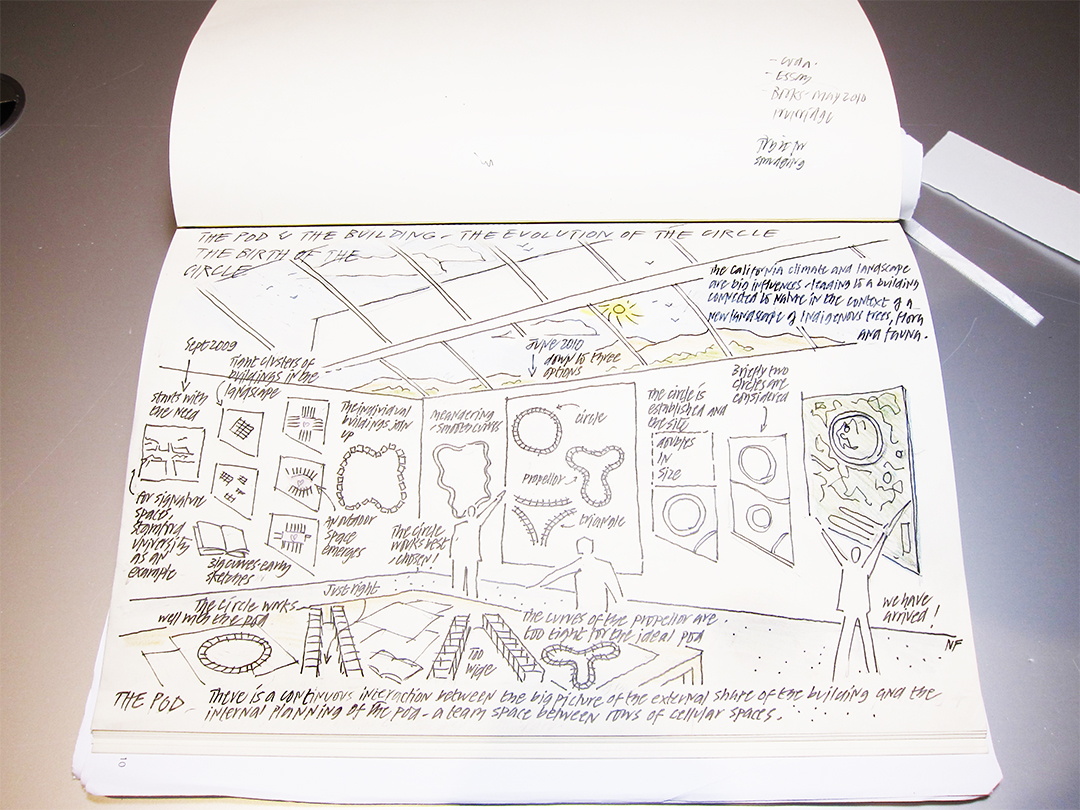 - Essay
- Books - May 2010
THE POD & THE BUILDING - THE EVOLUTION OF THE CIRCLE
THE BIRTH OF THE
CIRCLE
The California climate and landscape
are big influences - leading to a building
connected to nature in the context of a
new landscape of indigenous trees, flora
and fauna.
Sept 2009
starts with
the need
Tight clusters of
buildings in the
landscape
The individual
buildings join
up
meandering
- smooth curves
June 2010
down to three
options
circle
propellor
triangle
The circle is
established and
the site
doubles
in
size
Briefly two
circles are
considered
for signature
spaces,
Stanford
University
as an
example
early
sketches
an outdoor
space
emerges
The circle
works best
- chosen!
we have
arrived!
NF
The circle works
well with the pod
Just right
Too
wide
The curves of the propellor are
too tight for the ideal pod
THE POD - There is a continuous interaction between the big picture of the external shape of the building and the
internal planning of the pod - a team space between rows of cellular spaces.
10